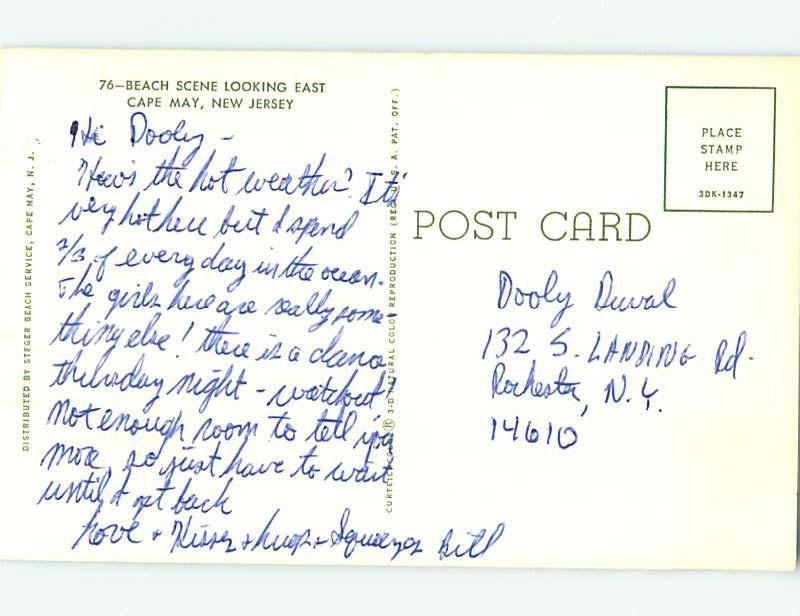 76—BEACH SCENE LOOKING EAST
CAPE MAY, NEW JERSEY
Hi Dooly –
How's the hot weather? It's
very hot here but I spend
2/3 of every day in the ocean.
The girls here are really some-
thing else! there is a dance
thursday night – watchout!
Not enough room to tell you
more, so just have to wait
until I get back
Love + Kisses + hugs + Squeezes Bill
DISTRIBUTED BY STEGER BEACH SERVICE, CAPE MAY, N. J.
CURTEICHCOLOR® 3-D NATURAL COLOR REPRODUCTION (REG. U. S. A. PAT. OFF.)
POST CARD
PLACE
STAMP
HERE
3DK-1347
Dooly Duval
132 S. LANDING Rd.
Rochester, N.Y.
14610